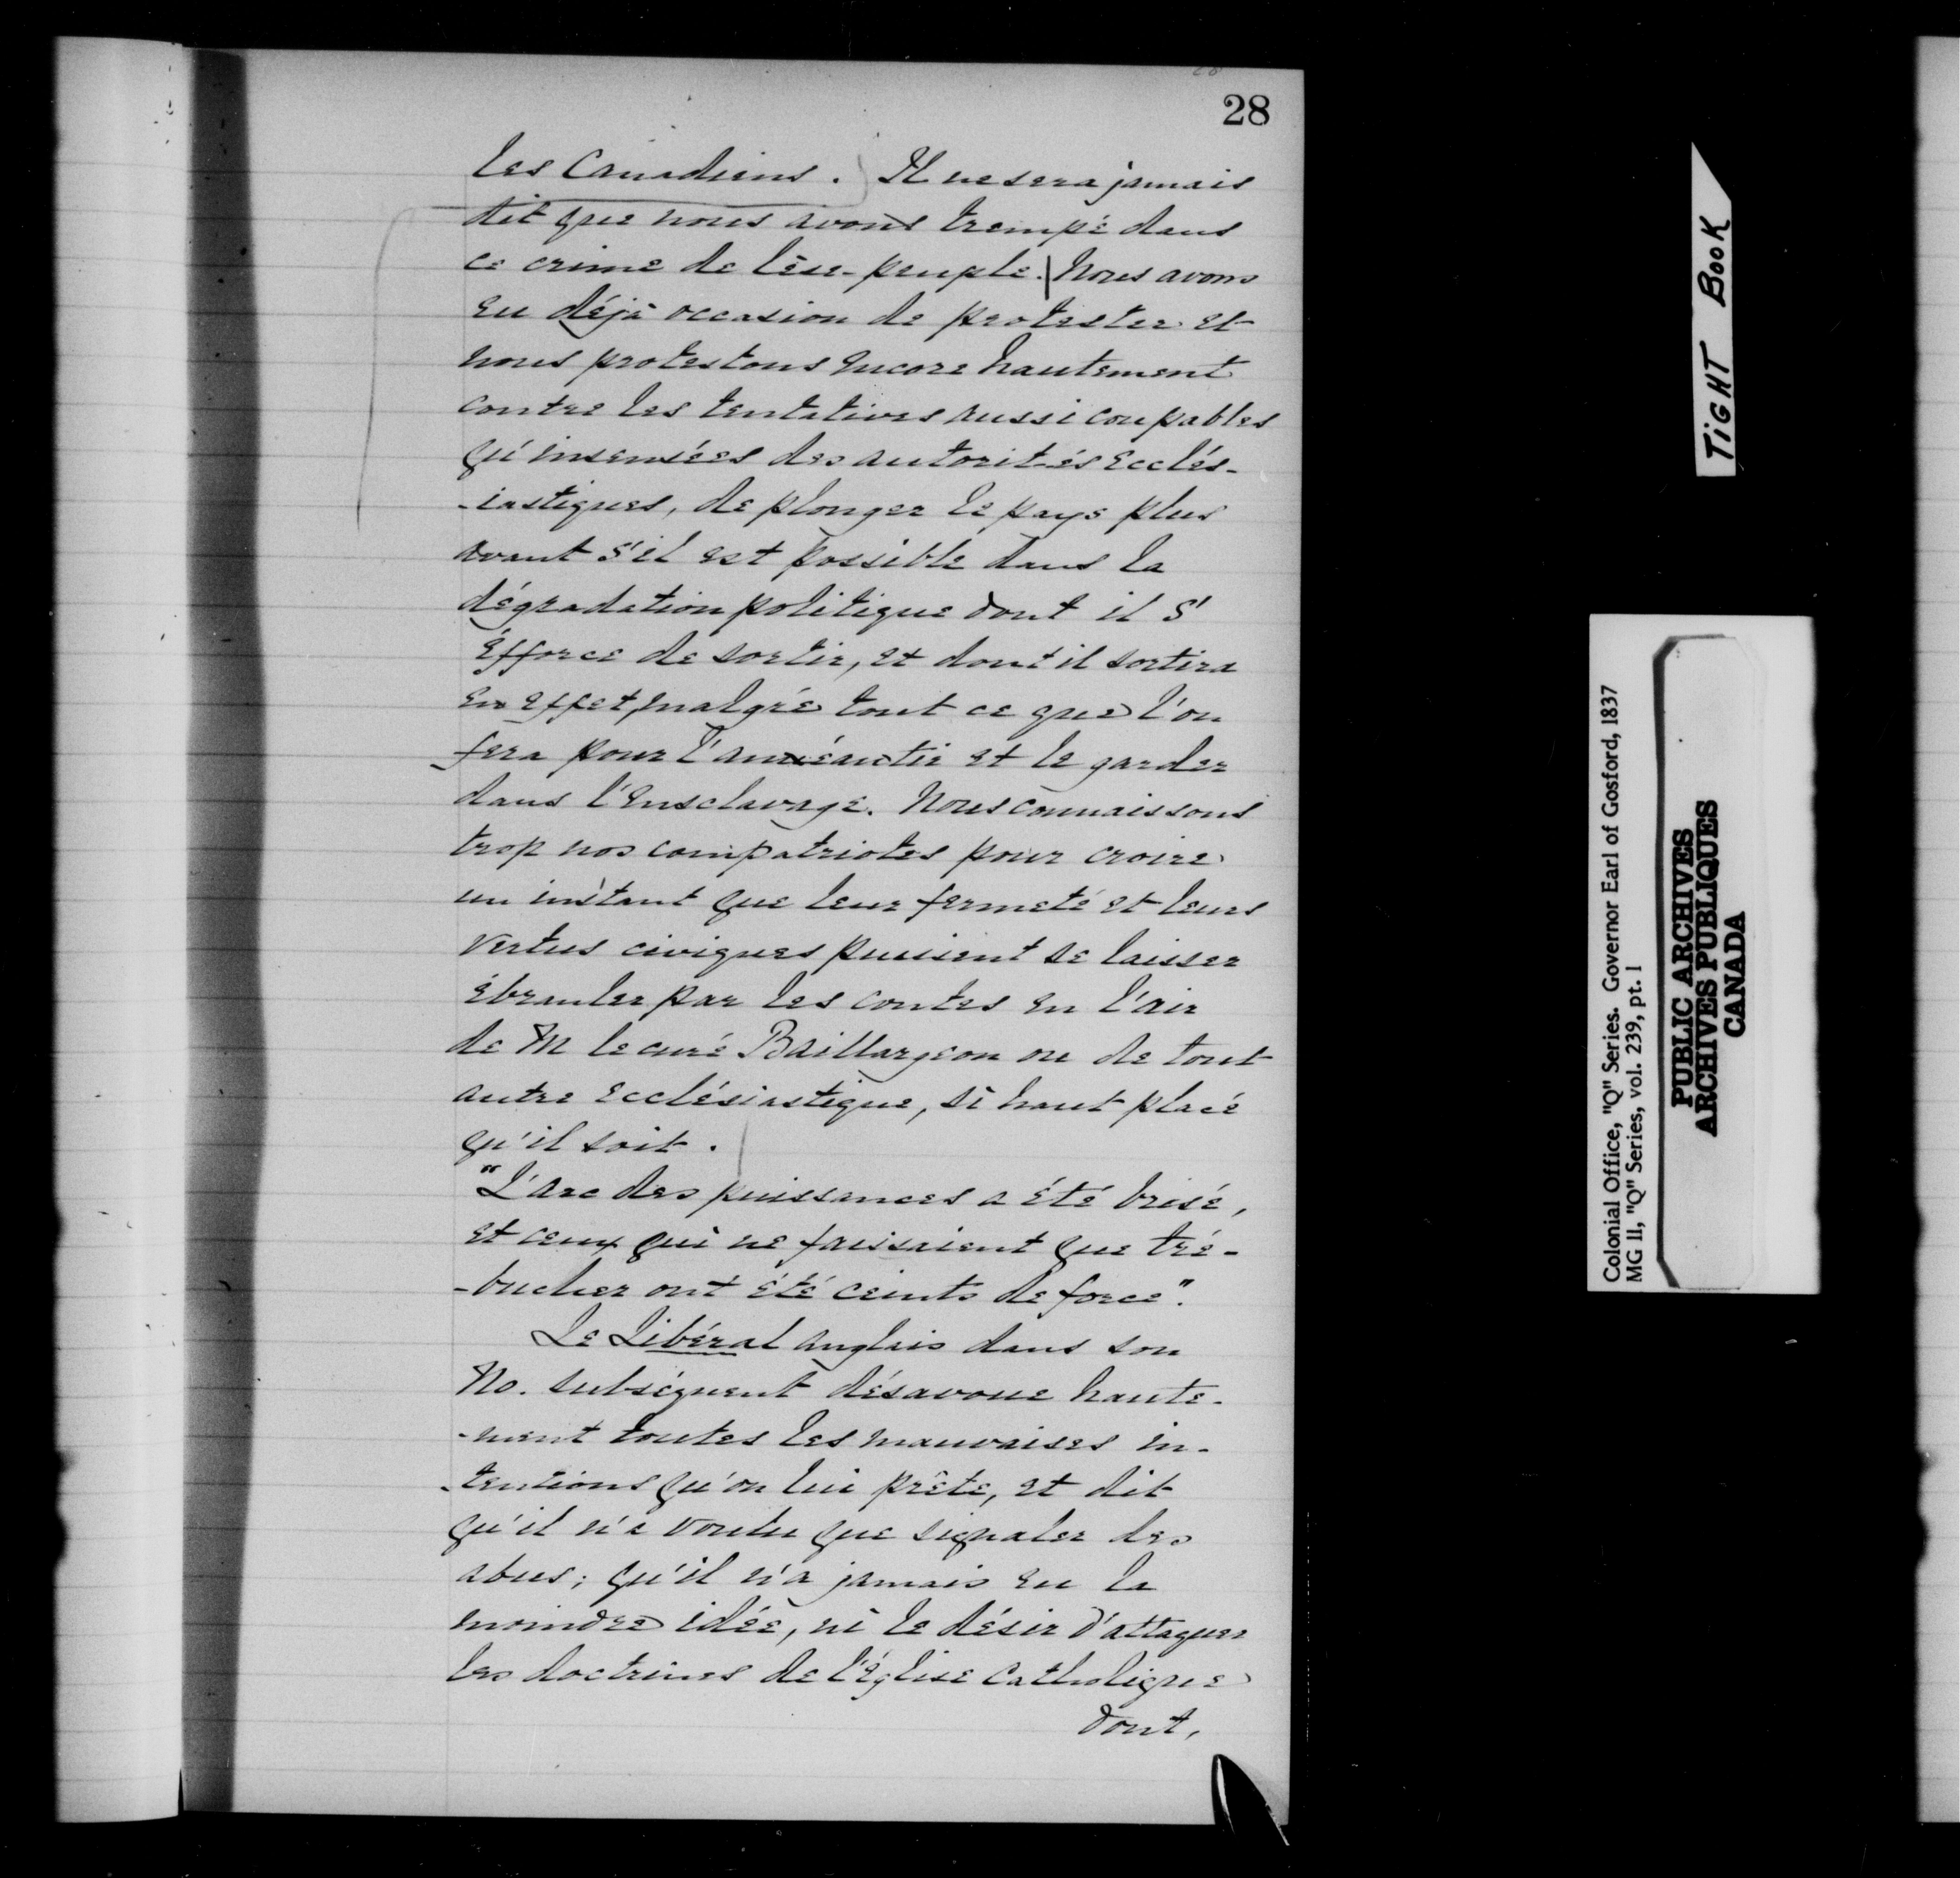 28
les Canadiens. Il ne sera jamais
dit que nous avons trempé dans
ce crime de lèse-peuple. Nous avons
eu déjà occasion de protester et
nous protestons encore hautement
contre les tentatives aussi coupables
qu'insensées des autorités ecclés-
-iastiques, de plonger le pays plus
avant s'il est possible dans la
dégradation politique dont il s'
éfforce de sortir, et dont il sortira
en effet, malgré tout ce que l'on
fera pour l'annéantir et le garder
dans l'Ensclavage. Nous connaissons
trop nos compatriotes pour croire
un instant que leur fermeté et leurs
vertus civiques puisient se laisser
ébranler par les contes en l'air
de M le curé Baillargeon ou de tout
autre Ecclésiastique, si haut placé
qu'il soit.
"L'arc des puissances a été brisé,
et ceux qui ne faissaient que tré-
-bucher ont été ceints de force".
Le Libéral anglais dans son
No. subséquent désavoue haute-
-ment toutes les mauvaises in-
-tentions qu'on lui prête, et dit
qu'il n'a voulu que signaler des
abus; qu'il n'a jamais eu la
moindre idée, ni le désir d'attaquer
les doctrines de l'Église Catholique
dont,
TIGHT BOOK
Colonial Office, "Q" Series. Governor Earl of Gosford, 1837
MG 11, "Q" Series, vol. 239, pt. 1
PUBLIC ARCHIVES
ARCHIVES PUBLIQUES
CANADA